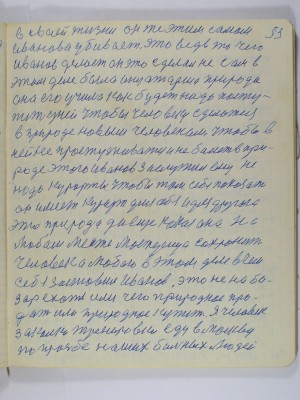 53
в своей жизни он же этим самым
Иванова убивает, это ведь то чего
Иванов делает он это сделал не сам в
этом деле была она же дана природа
она его учила как будет надо посту-
пит с ней чтобы человеку сделаться
в природе новым человеком чтобы в
ней не простуживаться и не болеть при-
роде этого Иванов заслужил ему не
надо курорты чтобы там себя показать
он имеет курорт для всех людей
это природа дивно показана на
любом месте сохранит
человека любого в этом деле всем
себя заслонил Иванов, это не на ба-
зар ехать или чего природное про-
дать или природное купить. Я человек
закалки тренировки еду в Москву
по просьбе наших больных людей